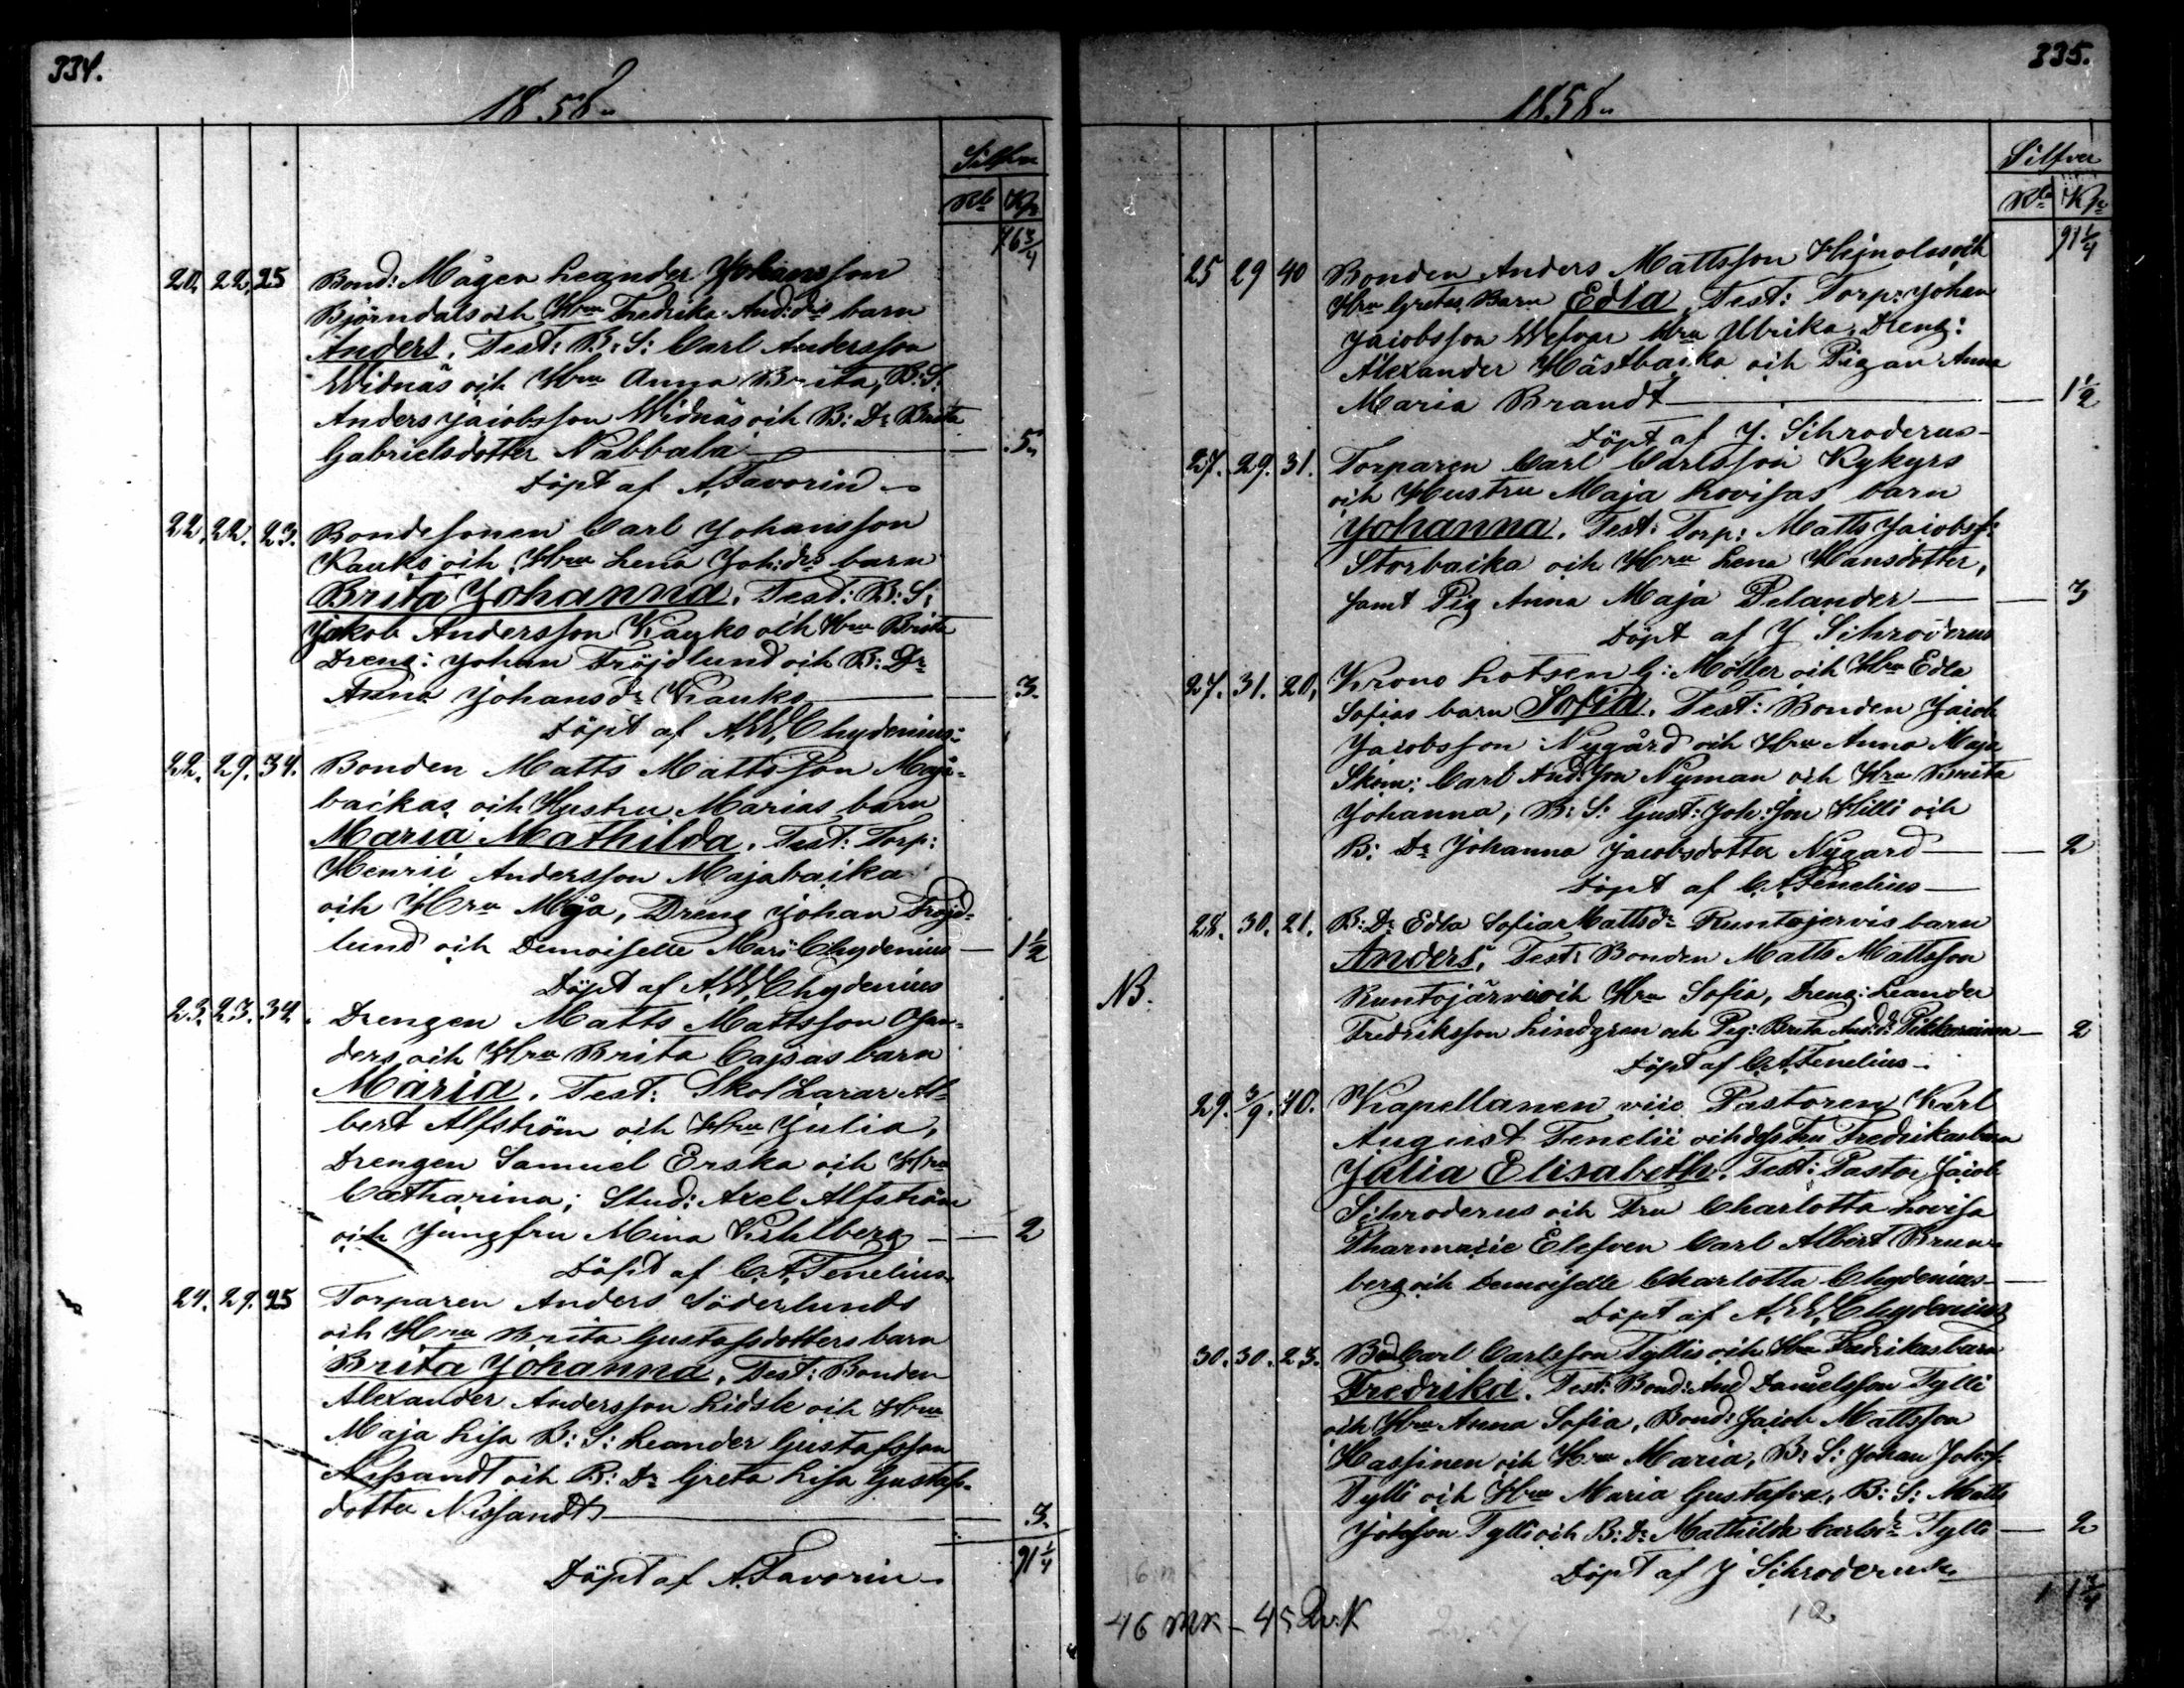 334.
1858.
Silfver
Rb Kp
76 3/4
20. 22. 25 Bond: Mågen Leander Johansson
Björndals och Hru Fredrika And:drs barn
Anders. Test: B: S: Carl Andersson
Widnäs och Hru Anna Brita, B: S:
Anders Jacobsson Widnäs och B: Dr Brita
Gabrielsdotter Nabbala — 5.
Döpt af A. Favorin
22. 22. 23. Bondesonen Carl Johansson
Kauks och Hru Lena Joh:drs barn
Brita Johanna. Test: B: S:
Jakob Andersson Kauko och Hru Brita
Dreng: Johan Fröjdlund och B: Dr
Anna Johansdr Kauko — 3.
Döpt af A.W. Chydenius.
22. 29. 34. Bonden Matts Mattsson Maja-
backas och Hustru Marias barn
Maria Mathilda. Test: Torp:
Henric Andersson Majabacka
och Hru Maja, Dreng Johan Fröjd-
lund och Demoiselle Mari Chydenius — 1 1/2
Döpt af A.W. Chydenius
23. 23. 34. Drengen Matts Mattsson
ders och Hru Brita Cajsas barn
Maria. Test: Skol Lärar Al-
bert Alfström och Hru Julia,
Drengen Samuel Erska och Hru
Catharina; Stud: Axel Alfström
och Jungfru Mina Kihlberg — 2
Döpt af C.A. Tenelius.
24. 29. 25 Torparen Anders Söderlunds
och Hru Brita Gustafsdotters barn
Brita Johanna. Test: Bonden
Alexander Andersson Lidsle och Hru
Maja Lisa B: S: Leander Gustafsson
Nissandt och B: Dr Greta Lisa Gustafs-
dotter Nissandt — 3.
91 1/4
Döpt af A. Favorin
335.
1858.
Silfver
Rb Kp
91 1/4
25 29 40 Bonden Anders Mattsson och
Hru Gretas Barn Edla. Test: Torp: Johan
Jacobsson Hru Ulrika, Dreng:
Alexander Hästbacka och Pigan Anna
Maria Brandt — 1 1/2
Döpt af J. Schroderus
27. 29. 31. Torparen Carl Carlsson Kykyrs
och Hustru Maja Lovisas barn
Johanna. Test: Torp: Matts Jacobss:
Storbacka och Hru Lena Hansdotter,
samt Pig Anna Maja Pelander — 3
Döpt af J Schroderus
27. 31. 20, Krono Lotsen G: Möller och Hru Edla
Sofias barn Sofia. Test: Bonden Jacob
Jacobsson Nygård och Hru Anna Maja
Skom: Carl And:son Nyman och Hru Brita
Johanna, B: S: Gust: Joh:son Hilli och
B: Dr Johanna Jacobsdotter Nygård — 2
Döpt af C.A. Tenelius
28. 30. 21. B: Dr Edla Sofias Mattsdr Runtujervis barn
Anders. Test: Bonden Matts Mattsson
NB.
Runtojärvi och Hru Sofia, Dreng: Leander
Fredriksson Lindgren och Pig: Brita And:dr Pikkarainen — 2
Döpt af C.A. Tenelius
29. 3/9. 40. Kapellanen vice Pastoren Karl
August Tenelii och dess Fru Fredrikas barn
Julia Elisabeth. Test: Pastor Jacob
Schroderus och Fru Charlotta Lovisa
Pharmacie Elefven Carl Albert Brun-
berg och Demoiselle Charlotta Chydenius —
Döpt af A.W. Chydenius
30. 30. 23. Bond Carl Carlsson Tyllis och Hru Fredrikas barn
Fredrika. Test: Bond: And Danielsson Tylli
och Hru Anna Sofia, Bond: Jacob Mattsson
Hassinen och Hru Maria, B: S: Johan Joh:s.
Tylli och Hru Maria Gustafva, B: S: Matts
Johsson Tylli och B: Dr Mathilda Carlsdr Tylli — 2
Döpt af J Schroderus
1 1 3/4
46 mk - 45 Qv.K